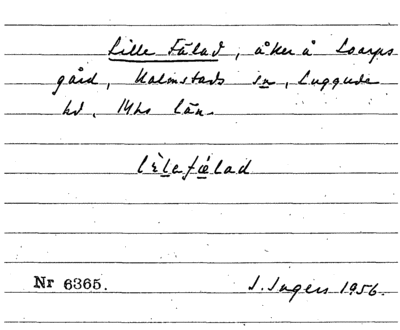 Lille Fälad, åker å Loarps
gård, Halmstads sn, Luggude
hd, Mhs län.
lìlafǽlad
Nr 6365.
J. Ingers 1956.